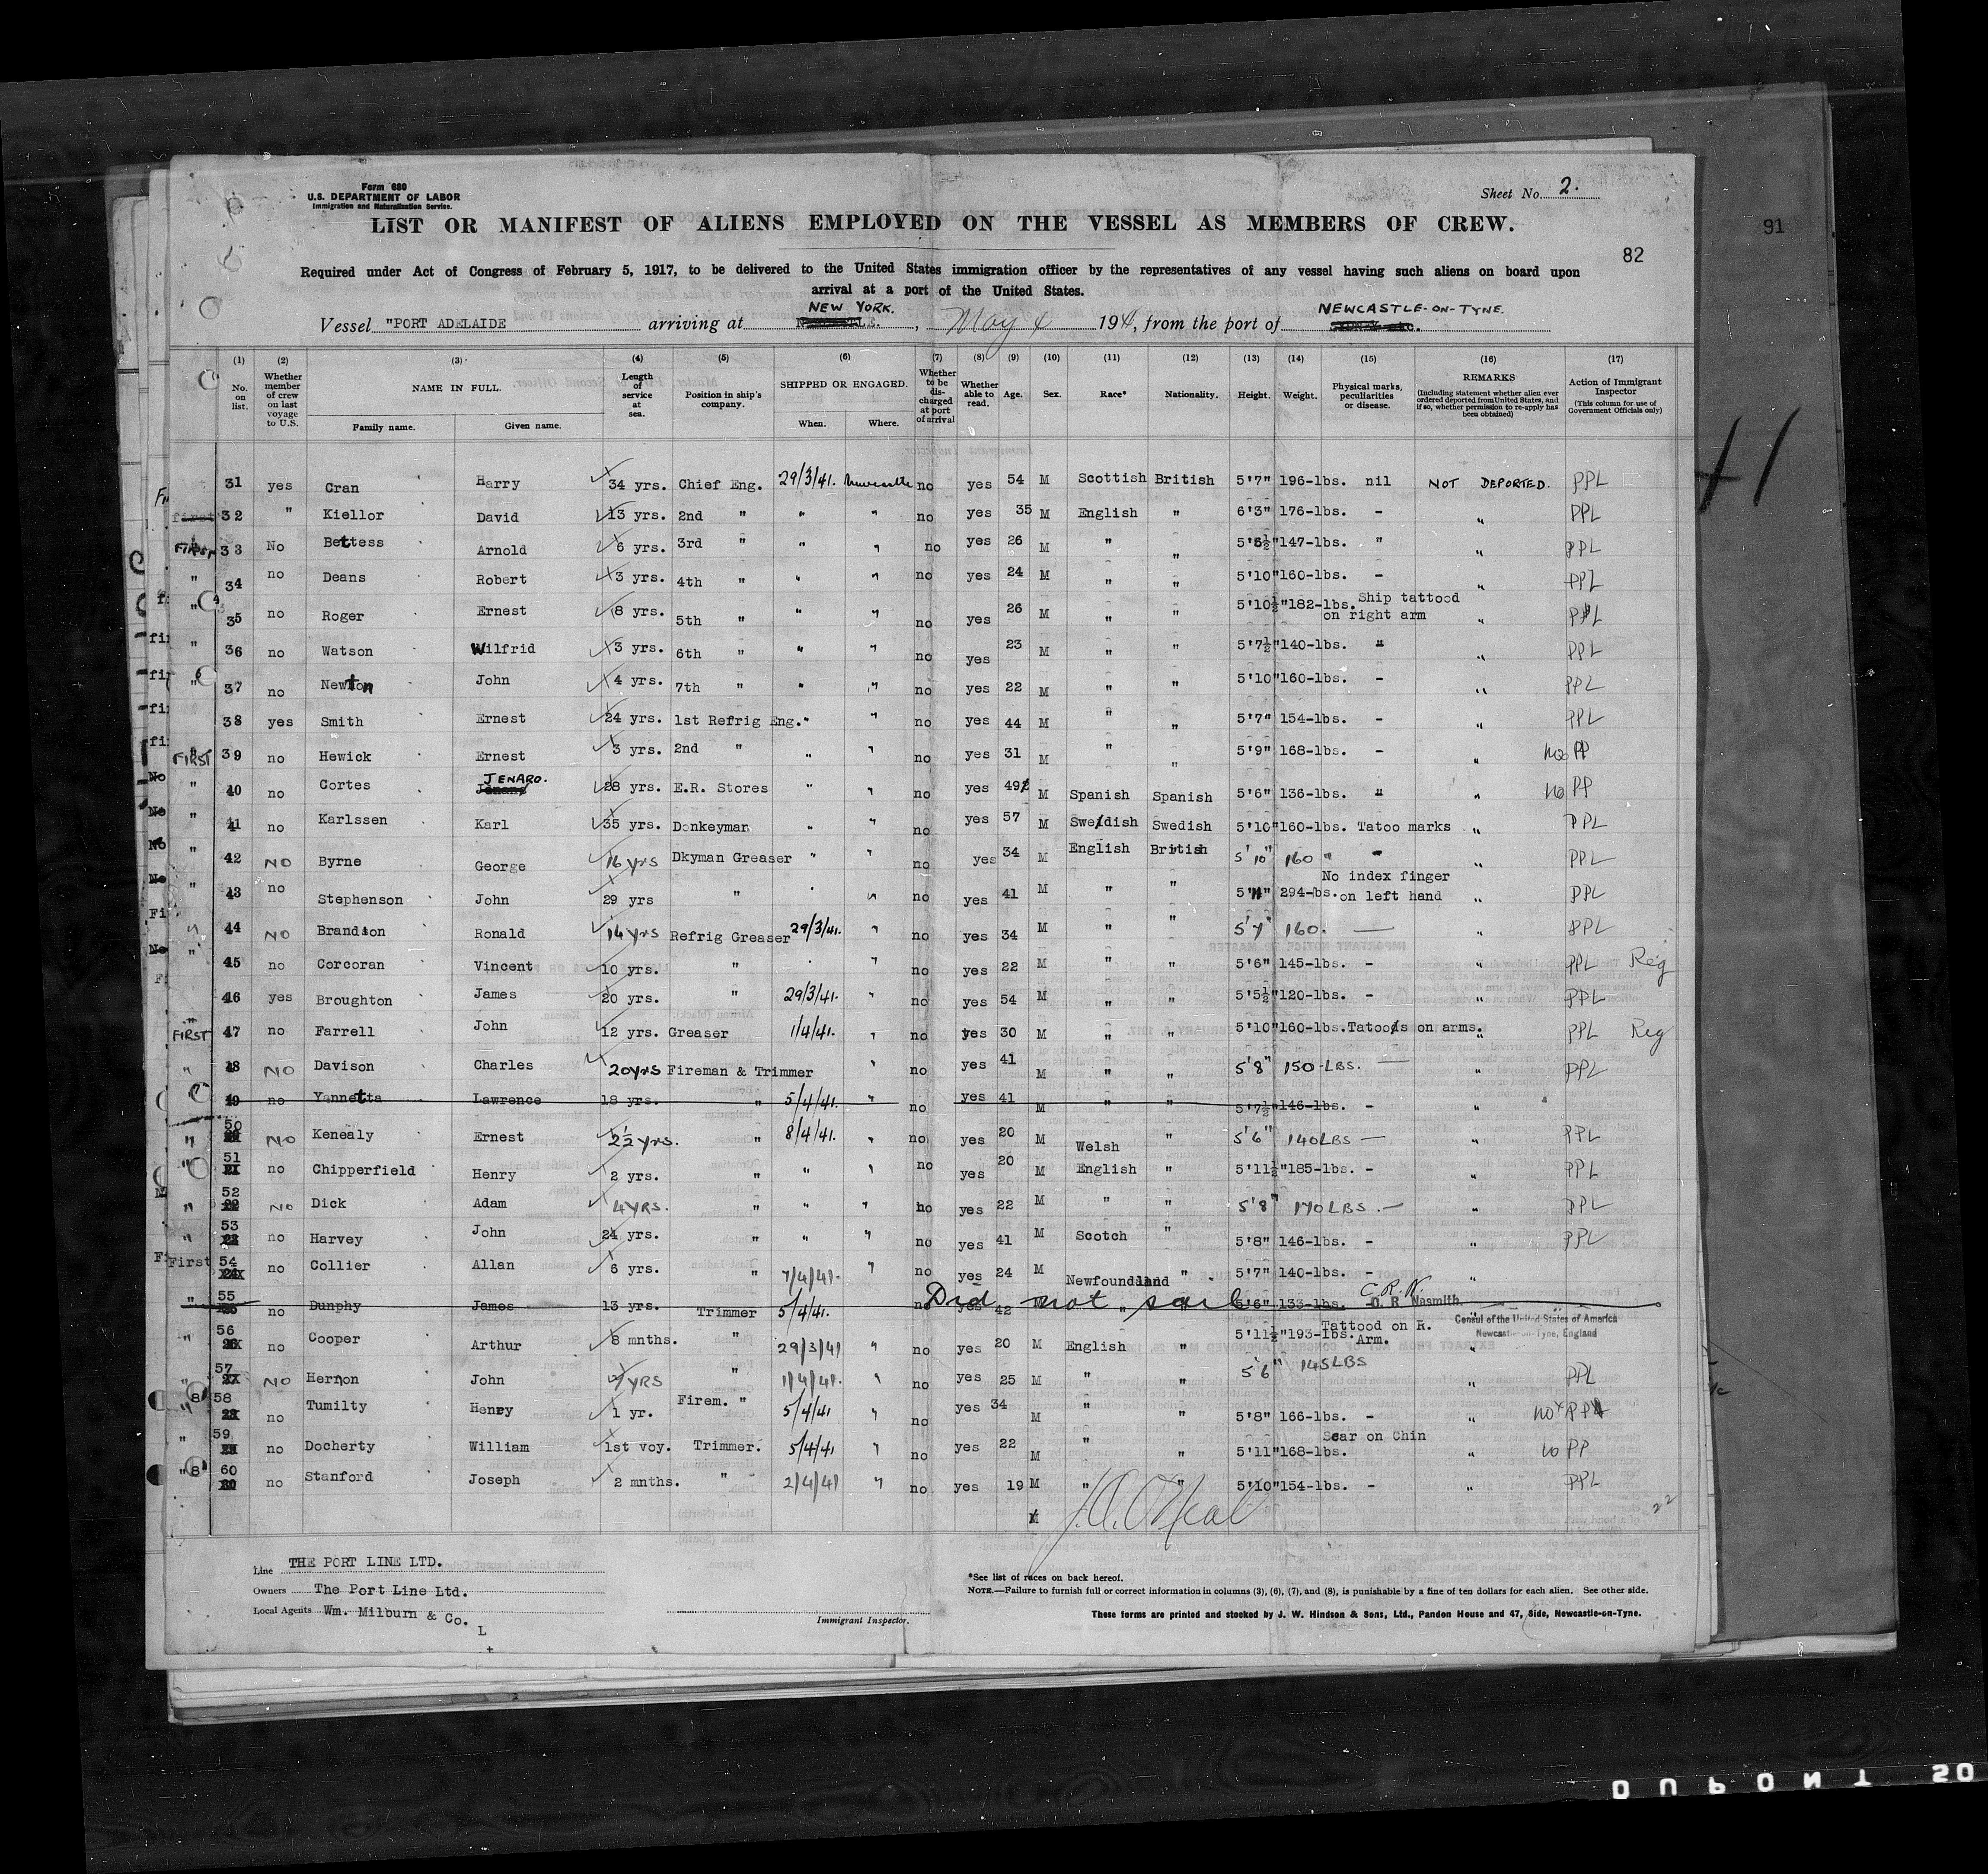 Form 680
U.S. DEPARTMENT OF LABOR
Immigration and Naturalization Service.
Sheet No. 2.
LIST OR MANIFEST OF ALIENS EMPLOYED ON THE VESSEL AS MEMBERS OF CREW.
91
82
Required under Act of Congress of February 5, 1917, to be delivered to the United States immigration officer by the representatives of any vessel having such aliens on board upon
arrival at a port of the United States.
NEW YORK. NEWCASTLE-ON-TYNE.
Vessel "PORT ADELAIDE arriving at , May 4 194, from the port of
(1) (2) (3) (4) (5) (6) (7) (8) (9) (10) (11) (12) (13) (14) (15) (16) (17)
No. on list. Whether member of crew on last voyage to U.S. NAME IN FULL. Length of service at sea. Position in ship's company. SHIPPED OR ENGAGED. Whether to be discharged at port of arrival Whether able to read. Age. Sex. Race* Nationality. Height. Weight. Physical marks, peculiarities or disease. REMARKS (Including statement whether alien ever ordered deported from United States, and if so, whether permission to re-apply has been obtained) Action of Immigrant Inspector (This column for use of Government Officials only)
Family name. Given name. When. Where.
31 yes Cran Harry 34 yrs. Chief Eng. 29/3/41. Newcastle no yes 54 M Scottish British 5'7" 196-lbs. nil NOT DEPORTED. PPL
first 32 " Kiellor David 13 yrs. 2nd " " " no yes 35 M English " 6'3" 176-lbs. - " PPL
FIRST 33 No Bettess Arnold 6 yrs. 3rd " " " no yes 26 M " " 5'5½" 147-lbs. " " PPL
" 34 no Deans Robert 3 yrs. 4th " " " no yes 24 M " " 5'10" 160-lbs. - " PPL
" 35 no Roger Ernest 8 yrs. 5th " " " no yes 26 M " " 5'10½" 182-lbs. Ship tattood on right arm " PPL
" 36 no Watson Wilfrid 3 yrs. 6th " " " no yes 23 M " " 5'7½" 140-lbs. " " PPL
" 37 no Newton John 4 yrs. 7th " " " no yes 22 M " " 5'10" 160-lbs. - " PPL
38 yes Smith Ernest 24 yrs. 1st Refrig Eng. " " no yes 44 M " " 5'7" 154-lbs. - " PPL
FIRST 39 no Hewick Ernest 3 yrs. 2nd " " " no yes 31 M " " 5'9" 168-lbs. - " no PP
" 40 no Cortes JENARO. 28 yrs. E.R. Stores " " no yes 49 M Spanish Spanish 5'6" 136-lbs. " " no PP
" 41 no Karlssen Karl 35 yrs. Donkeyman " " no yes 57 M Swedish Swedish 5'10" 160-lbs. Tatoo marks " PPL
" 42 NO Byrne George 16 yrs Dkyman Greaser " " no yes 34 M English British 5'10" 160 " - " PPL
" 43 no Stephenson John 29 yrs " " " no yes 41 M " " 5'11" 294-lbs. No index finger on left hand " PPL
" 44 NO Brandion Ronald 14 yrs Refrig Greaser 29/3/41. " no yes 34 M " " 5'7" 160. — " PPL
" 45 no Corcoran Vincent 10 yrs. " " " no yes 22 M " " 5'6" 145-lbs. - " PPL Reg
46 yes Broughton James 20 yrs. " 29/3/41. " no yes 54 M " " 5'5½" 120-lbs. - " PPL
FIRST 47 no Farrell John 12 yrs. Greaser 1/4/41. " no yes 30 M " " 5'10" 160-lbs. Tatoos on arms. " PPL Reg
" 48 NO Davison Charles 20yrs Fireman & Trimmer " no yes 41 M " " 5'8" 150-LBS. — " PPL
49 no Yannetta Lawrence 18 yrs. " 5/4/41. " no yes 41 M " " 5'7½" 146-lbs. - "
" 50 NO Kenealy Ernest 2½ yrs. " 8/4/41. " no yes 20 M Welsh " 5'6" 140LBS — " PPL
" 51 no Chipperfield Henry 2 yrs. " " " no yes 20 M English " 5'11½" 185-lbs. - " PPL
" 52 NO Dick Adam 4YRS. " " " no yes 22 M " " 5'8" 170LBS. — " PPL
" 53 no Harvey John 24 yrs. " " " no yes 41 M Scotch " 5'8" 146-lbs. - " PPL
First 54 no Collier Allan 6 yrs. " 7/4/41. " no yes 24 M Newfoundland " 5'7" 140-lbs. - "
" 55 no Dunphy James 13 yrs. Trimmer 5/4/41. no yes 42 Did not sail 5'6" 133-lbs. - C.R.N. C. R. Nasmith
Consul of the United States of America
Newcastle-on-Tyne, England
" 56 no Cooper Arthur 8 mnths. " 29/3/41 " no yes 20 M English " 5'11½" 193-lbs. Tattood on R. Arm. "
" 57 NO Hernon John 7YRS " 1/4/41. " no yes 25 M " " 5'6" 145LBS " PPL
" 58 no Tumilty Henry 1 yr. Firem. " 5/4/41 " no yes 34 M " " 5'8" 166-lbs. - " no PP
" 59 no Docherty William 1st voy. Trimmer. 5/4/41 " no yes 22 M " " 5'11" 168-lbs. Scar on Chin " no PP
" 60 no Stanford Joseph 2 mnths. " 2/4/41 " no yes 19 M " " 5'10" 154-lbs. - " PPL
J.A. O'Neal
22
Line THE PORT LINE LTD.
Owners The Port Line Ltd.
Local Agents Wm. Milburn & Co.
L
Immigrant Inspector.
*See list of races on back hereof.
NOTE.—Failure to furnish full or correct information in columns (3), (6), (7), and (8), is punishable by a fine of ten dollars for each alien. See other side.
These forms are printed and stocked by J. W. Hindson & Sons, Ltd., Pandon House and 47, Side, Newcastle-on-Tyne.
DUPONT 50